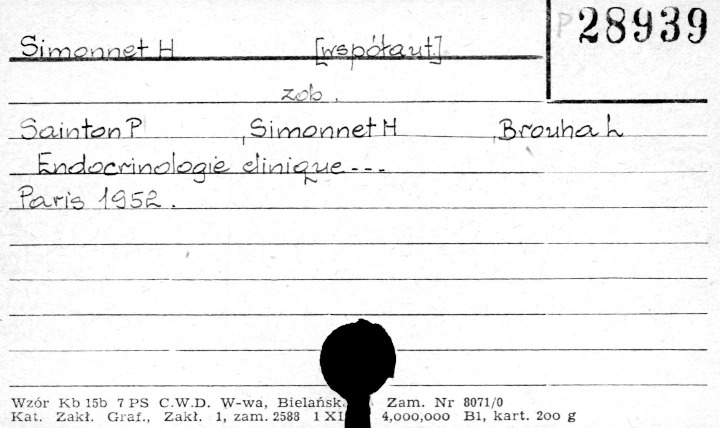 Simonnet H [współaut.] P 28939
zob.
Sainton P, Simonnet H, Brouha L
Endocrinologie clinique---
Paris 1952.
Wzór Kb 15b 7 PS C.W.D. W-wa, Zam. Nr 8071/0
Kat. Zakł. Graf., Zakł. 1, zam. 2588 1 4,000,000 B1, kart. 200 g